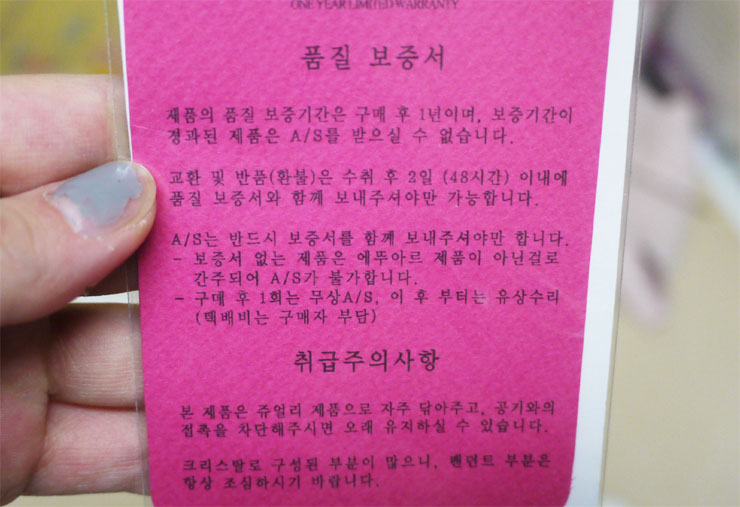 ONE YEAR LIMITED WARRANTY
품질 보증서
제품의 품질 보증기간은 구매 후 1년이며, 보증기간이
경과된 제품은 A/S를 받으실 수 없습니다.
교환 및 반품(환불)은 수취 후 2일 (48시간) 이내에
품질 보증서와 함께 보내주셔야만 가능합니다.
A/S는 반드시 보증서를 함께 보내주셔야만 합니다.
- 보증서 없는 제품은 에뚜아르 제품이 아닌걸로
간주되어 A/S가 불가합니다.
- 구매 후 1회는 무상A/S, 이 후 부터는 유상수리
(택배비는 구매자 부담)
취급주의사항
본 제품은 쥬얼리 제품으로 자주 닦아주고, 공기와의
접촉을 차단해주시면 오래 유지하실 수 있습니다.
크리스탈로 구성된 부분이 많으니, 펜던트 부분은
항상 조심하시기 바랍니다.